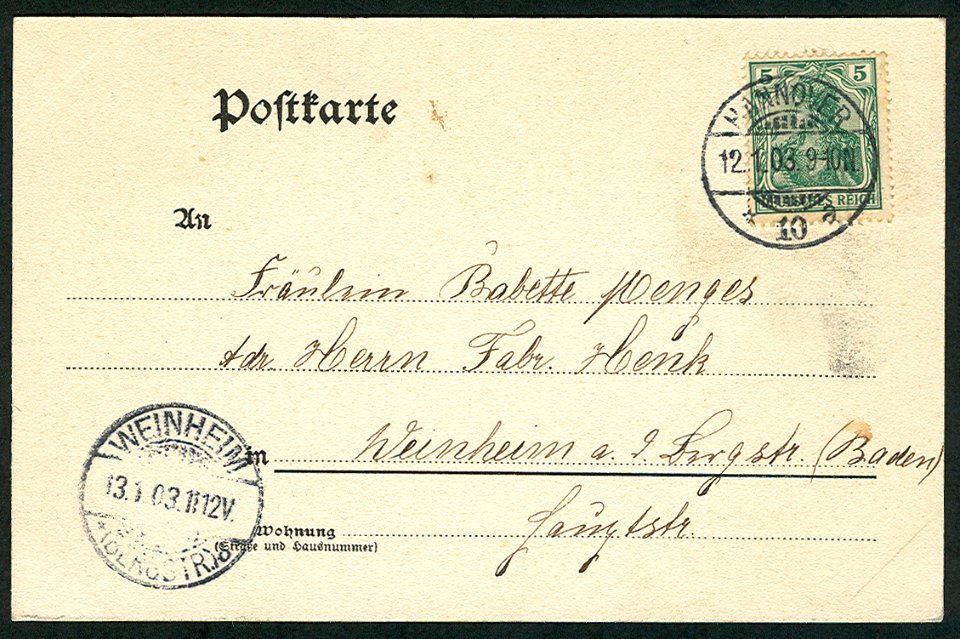 Postkarte
5 5
DEUTSCHES REICH
HANNOVER
12.1.03. 9-10N.
* 10 a
An
Fräulein Babette Menges
Adr. Herrn Fabr. Henk
in Weinheim a. d. Bergstr. (Baden)
Wohnung Hauptstr.
(Straße und Hausnummer)
WEINHEIM
13.1.03.11-12V.
*(BERGSTR)*